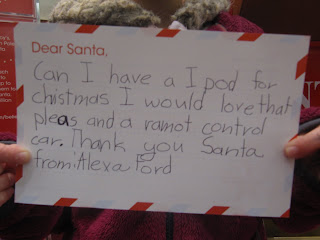 Dear Santa,
Can I have a I pod for
christmas I would love that
pleas and a ramot control
car. Thank you Santa
from: Alexa Ford